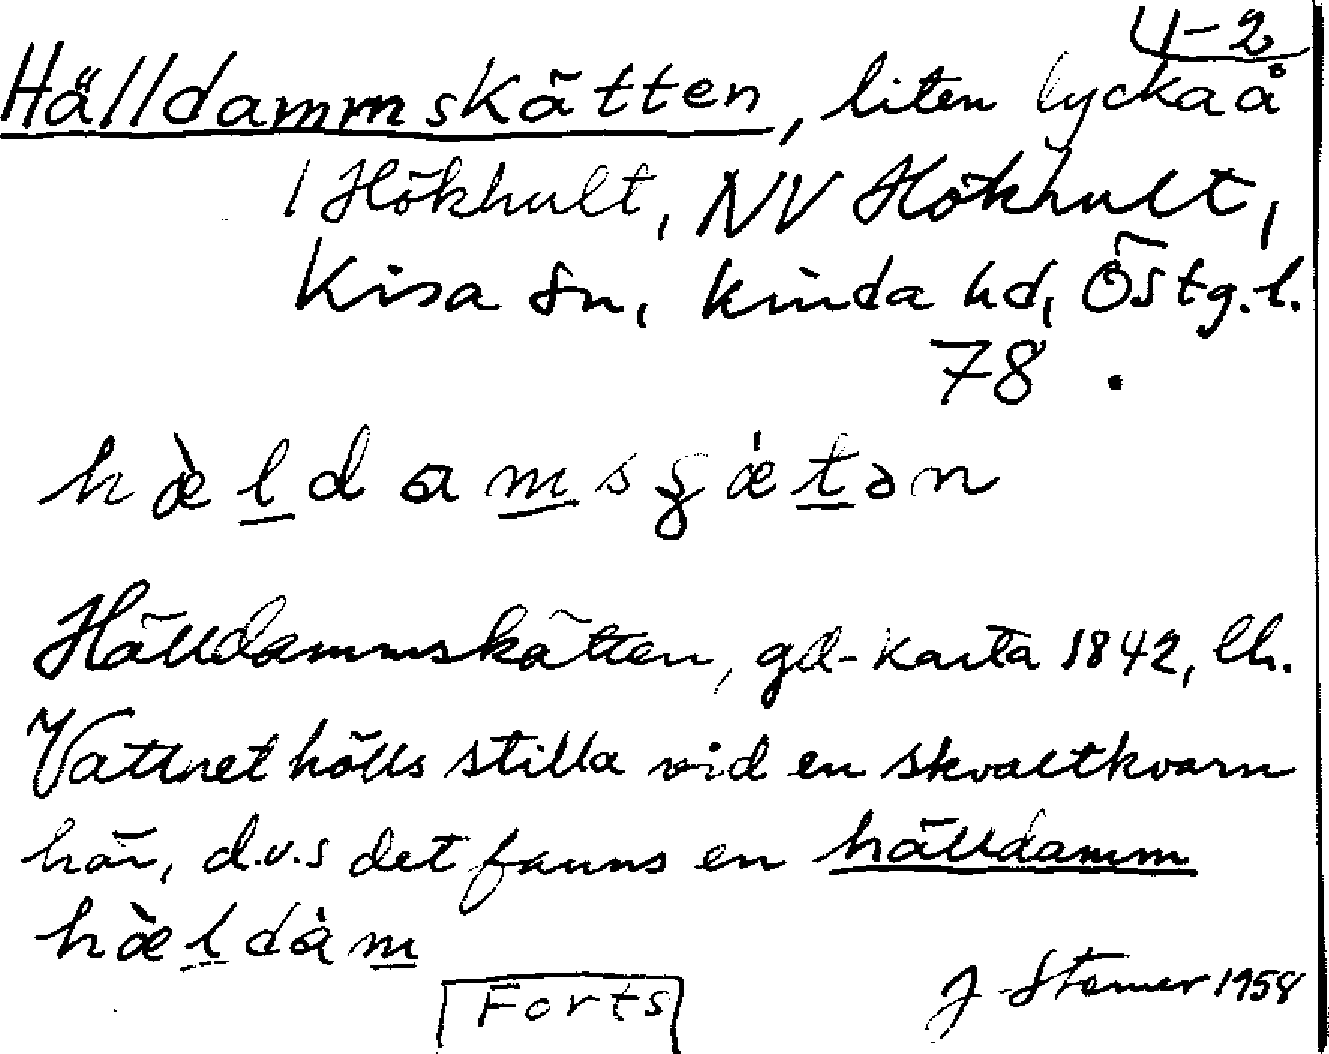 4-2
Hälldammskätten, liten lycka å
1 Hökhult, NV Hökhult,
Kisa sn, Kinda hd, Östg.l.
78.
hæ̀l̲dam̲sʂæ̇t̲ən
Hälldammskätten, gd-karta 1842, lh.
Vattnet hölls stilla vid en skvaltkvarn
här, d.v.s det fanns en hälldamm
hæ̀l̲dȧm̲
Forts
J Stemer 1958